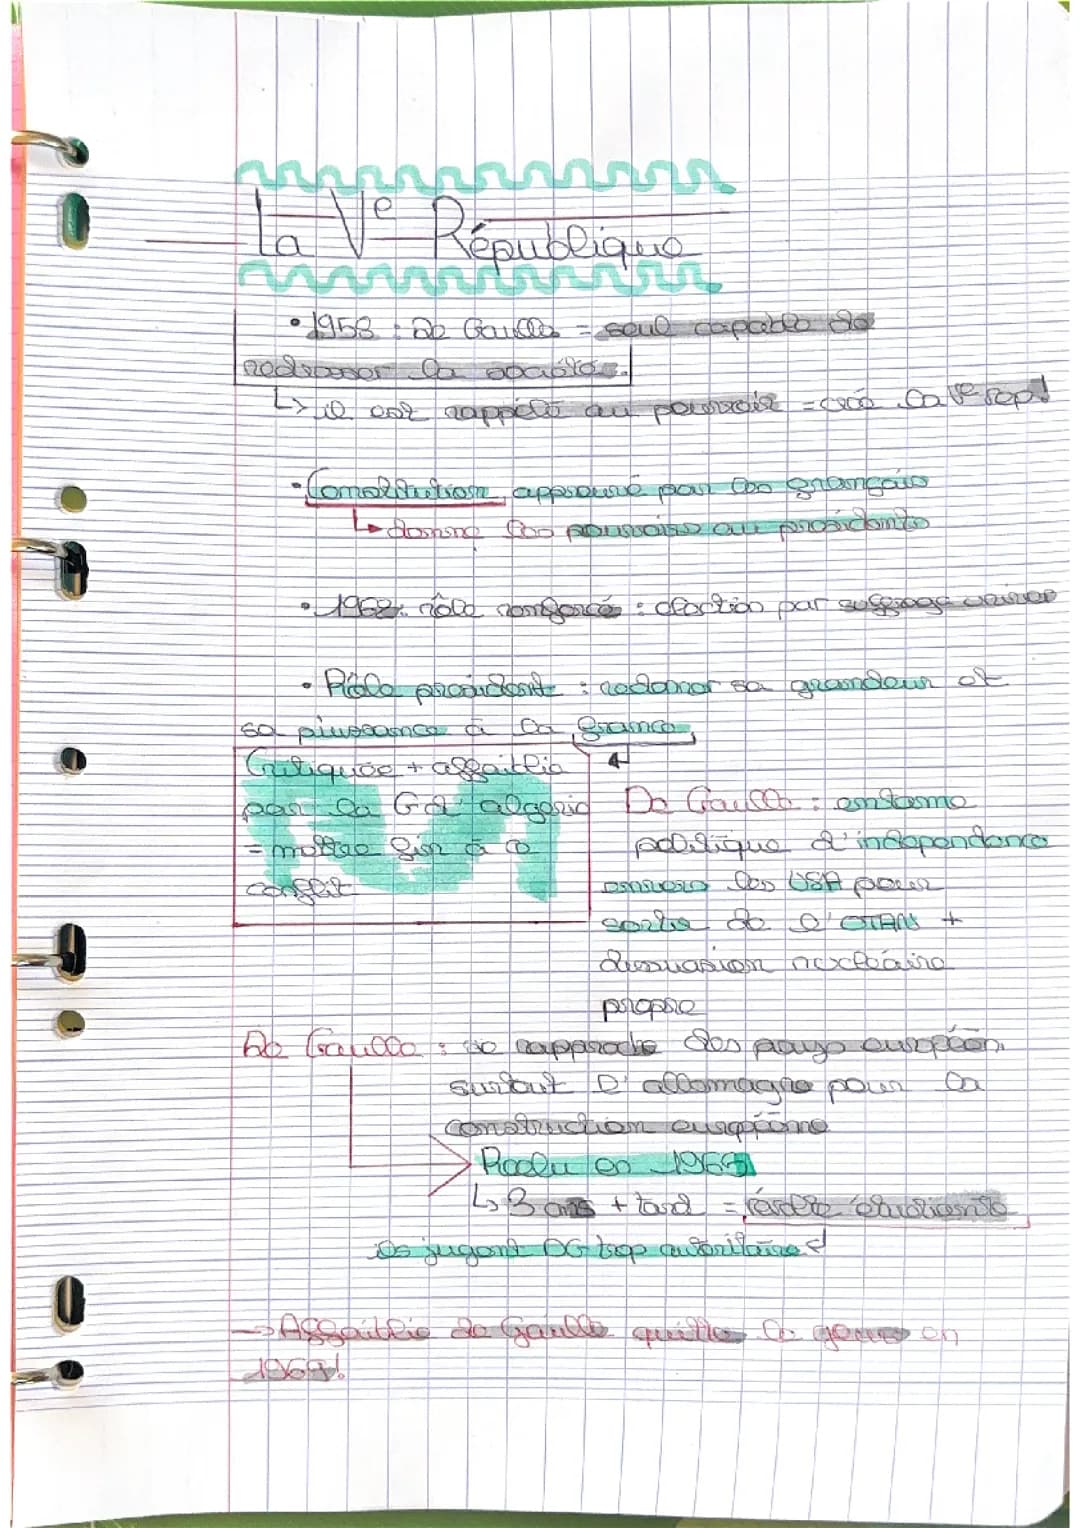 La Ve République
• 1958 : De Gaulle = seul capable de
redresser la société.
↳ il est rappelé au pouvoir = créé la Ve rep!
• Constitution approuvé par les français
↳ donne les pouvoirs au présidents
• 1962: rôle renforcé : élection par suffrage univer
• Rôle président : redonner sa grandeur et
sa piussance à la france
Critiquée + affaiblie
par la G d'algérie
= mettre fin à ce
conflit
De Gaulle : entame
politique d'indépendance
envers les USA pour
sortir de l'OTAN +
dissuasion nucléaire
propre
De Gaulle : se rapproche des pays européen,
surtout l'allemagne pour la
construction européenne
Réélu en 1965
↳ 3 ans + tard = révolte étudiante
ils jugent DG trop autoritaire
→ Affaiblie de Gaulle quitte le gouv en
1969!